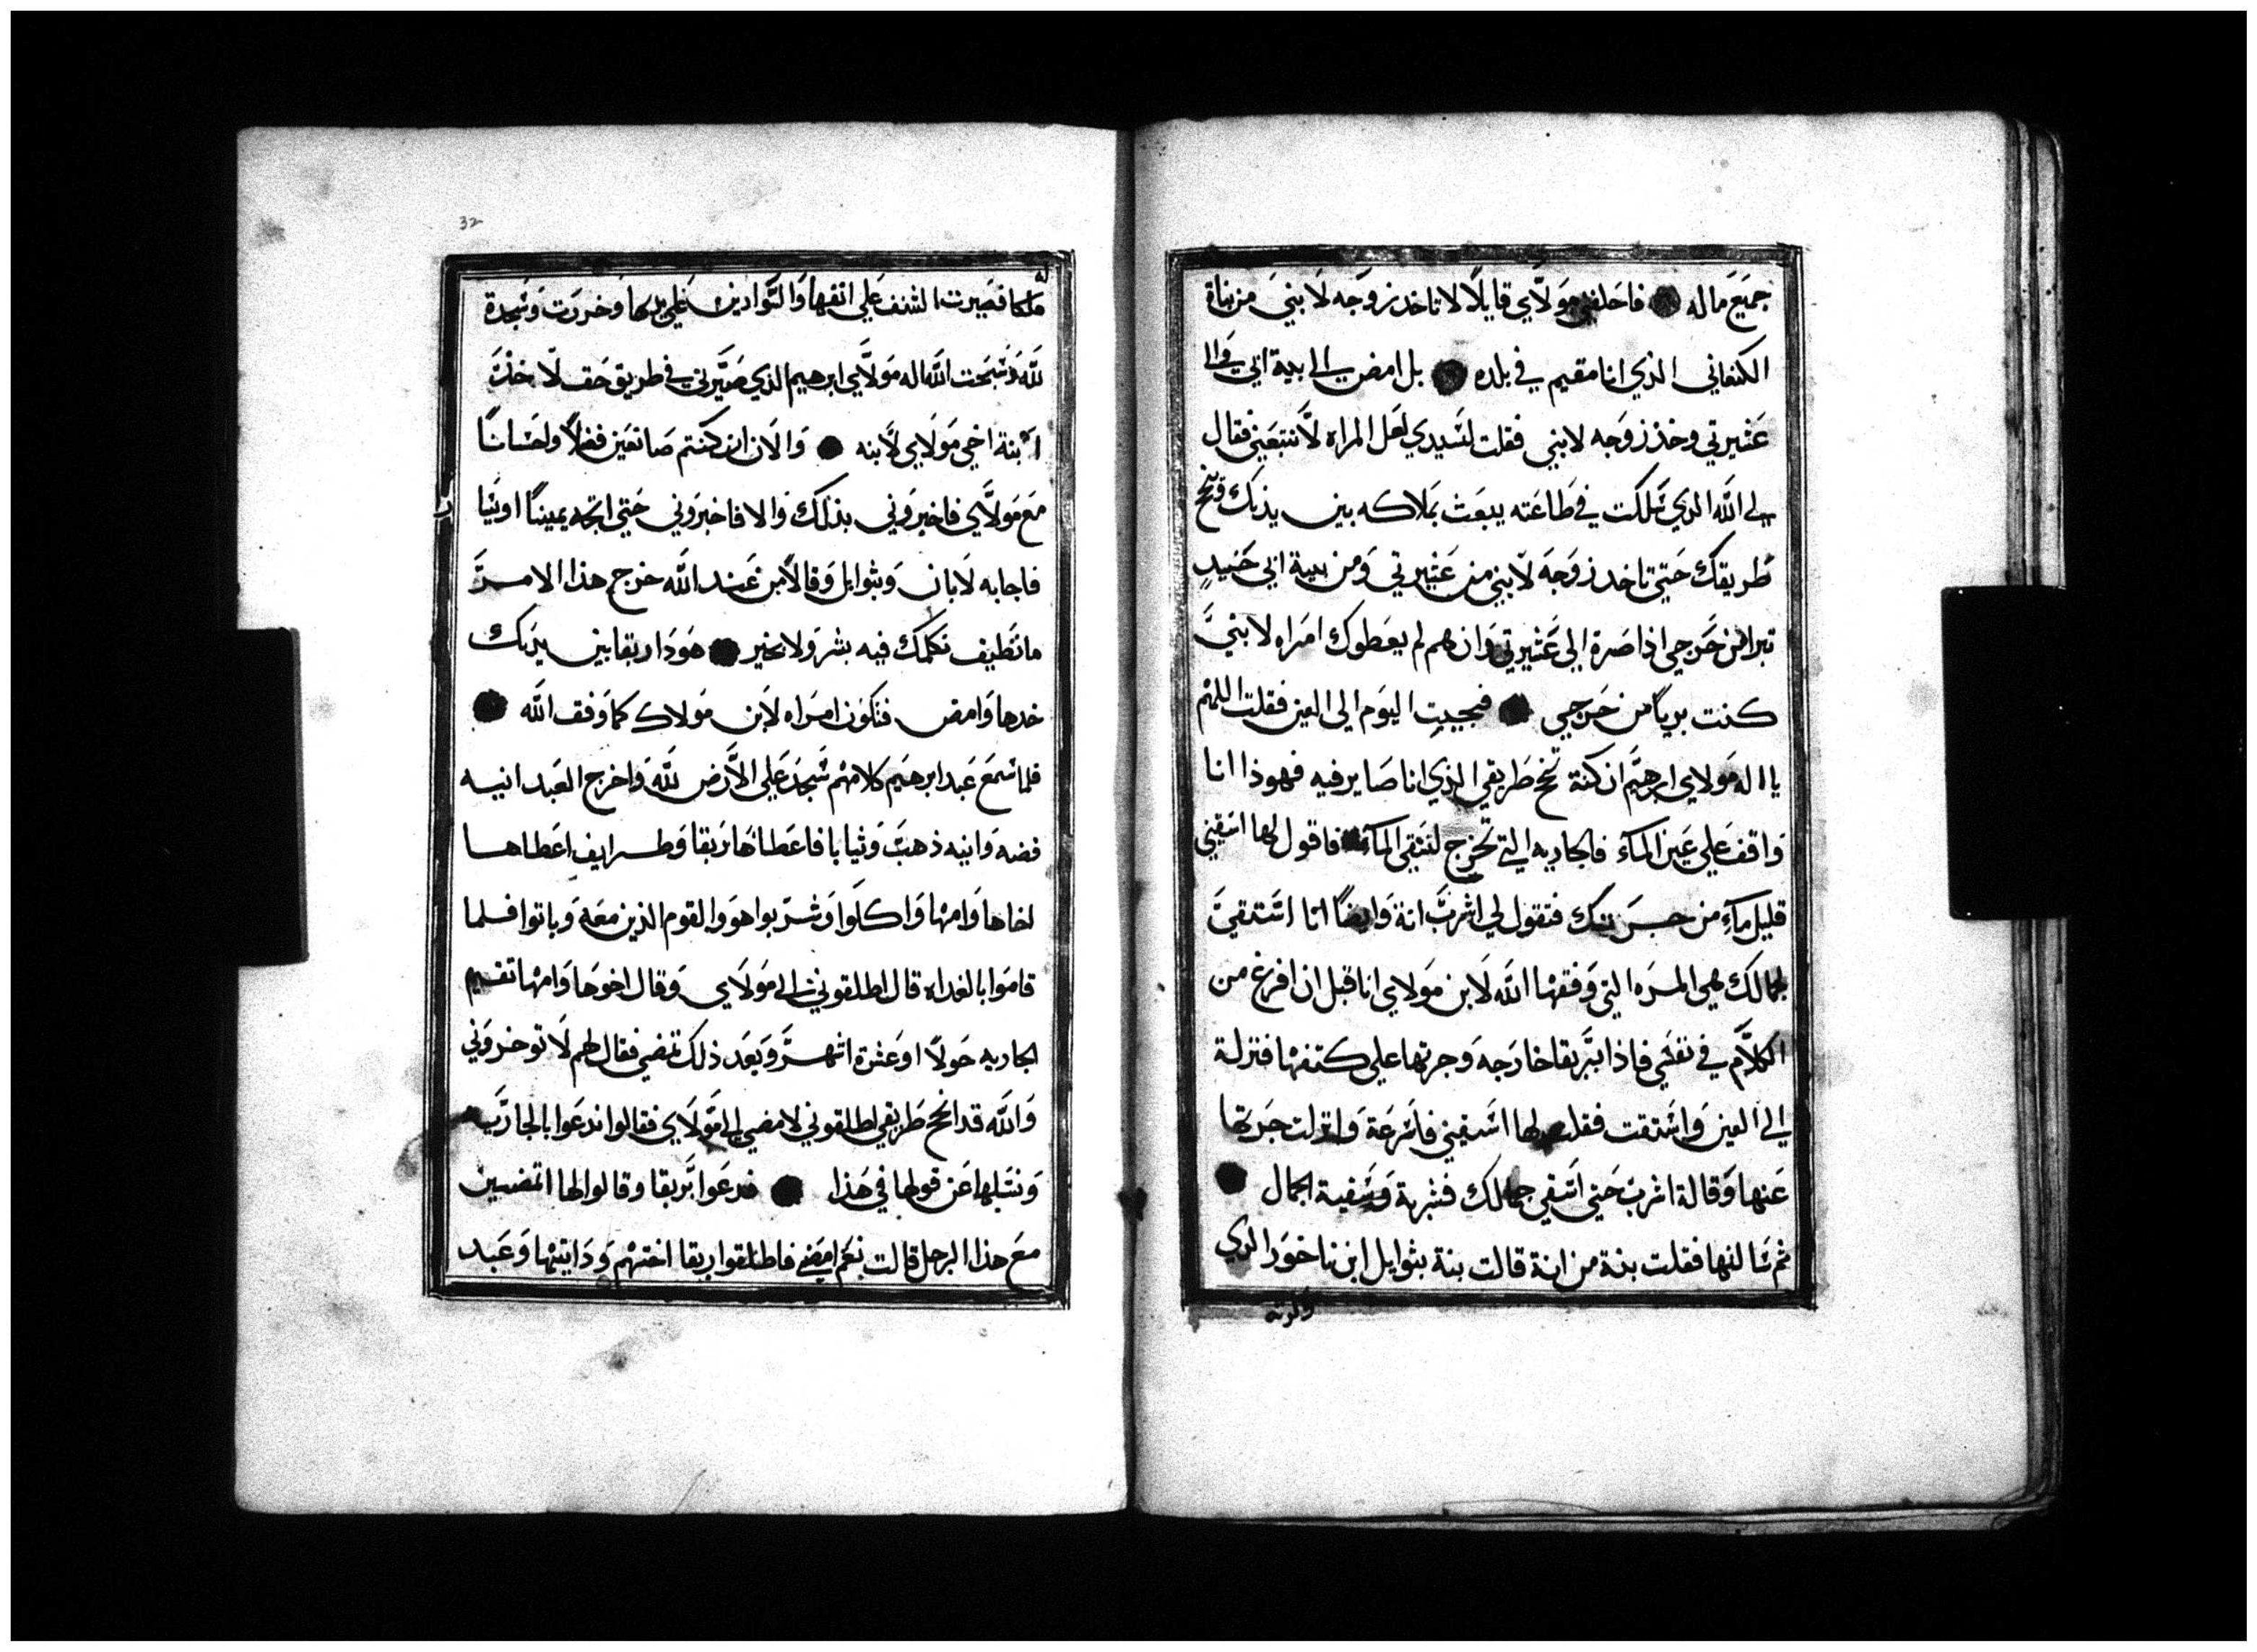 جميع ماله فاحلفني مولاي قايلًا لا تاخد زوجه لابني من بناة
الكنعاني الذي انا مقيم في بلده بل امض الي بية ابي والي
عشيرتي وخذ زوجه لابني فقلت لسيدي لعل المراه لا تتبعني فقال
لي الله الدي سلكت في طاعته يبعث بملاكه بين يديك وينجح
طريقك حتي تاخد زوجه لابني من عشيرتي ومن بية ابي حنيدٍ
تبرا من حرجي اذا صرة الي عشيرتي وان هم لم يعطوك امراه لابني
كنت بريًا من حرجي فجيت اليوم الي العين فقلت اللهم
يا اله مولاي ابرهيم ان كنة تنجح طريقي الذي انا صاير فيه فهوذا انا
واقف علي عين المآء فالجاريه التي تخرج لتستقي المآء فاقول لها اسقيني
قليل مآءٍ من جرتك فتقول لي اشرب انة وايضًا انا استقي
لجمالك هي المره التي وفقها الله لابن مولاي انا قبل ان افرغ من
الكلام في نفسي فاذا بربقا خارجه وجرتها علي كتفها فنزلة
الي العين واستقت فقلت لها اسقيني فاسرعة وانزلت جرتها
عنها وقالة اشرب حتي اسقي جمالك فشربة وسقية الجمال
ثم سالتها فقلت بنة من انة قالت بنة بثوايل ابن ناخور الدي
ولدته
32
ملكا فصيرت الشنف علي انفها والسوارين علي يديها وخررت وسجدة
لله وسبحت الله اله مولاي ابرهيم الذي صيرني في طريق حق لاخذ
ابنة اخي مولاي لابنه والان ان كنتم صانعين فضلًا واحسانًا
مع مولاي فاخبروني بذلك والا فاخبروني حتي اتجه يمينًا او
فاجابه لابان وبثوايل وقالا من عند الله خرج هذا الامر
ما نطيف نكلمك فيه بشر ولا بخير هوذا ربقا بين يديك
خدها وامض فتكون امراه لابن مولاك كما وفق الله
فلما سمع عبد ابرهيم كلامهم سجد علي الارض لله واخرج العبد انيه
فضه وانيه ذهب وثيابا فاعطاها ربقا وطرايف اعطاها
اخاها وامها واكلوا وشربوا هو والقوم الذين معه وباتوا فلما
قاموا بالغداه قال اطلقوني الي مولاي وقال اخوها وامها تقيم
الجاريه حولًا او عشرة اشهر وبعد ذلك تمضي فقال لهم لا توخروني
والله قد انجح طريقي اطلقوني لامضي الي مولاي فقالوا ندعوا بالجاريه
ونسلها عن قولها في هذا فدعوا بربقا وقالوا لها اتمضين
مع هذا الرجل قالت نعم امضي فاطلقوا ربقا اختهم ودايتها وعبد